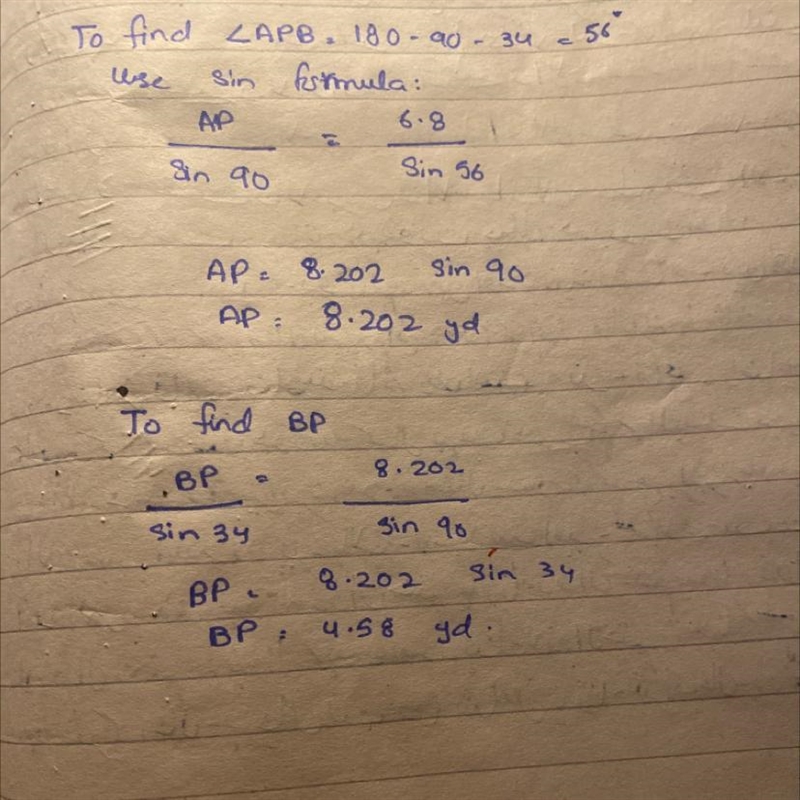 To find ∠APB = 180 - 90 - 34 = 56°
Use sin formula:
AP / sin 90 = 6.8 / Sin 56
AP = 8.202 sin 90
AP = 8.202 yd
To find BP
BP / sin 34 = 8.202 / sin 90
BP = 8.202 sin 34
BP = 4.58 yd.